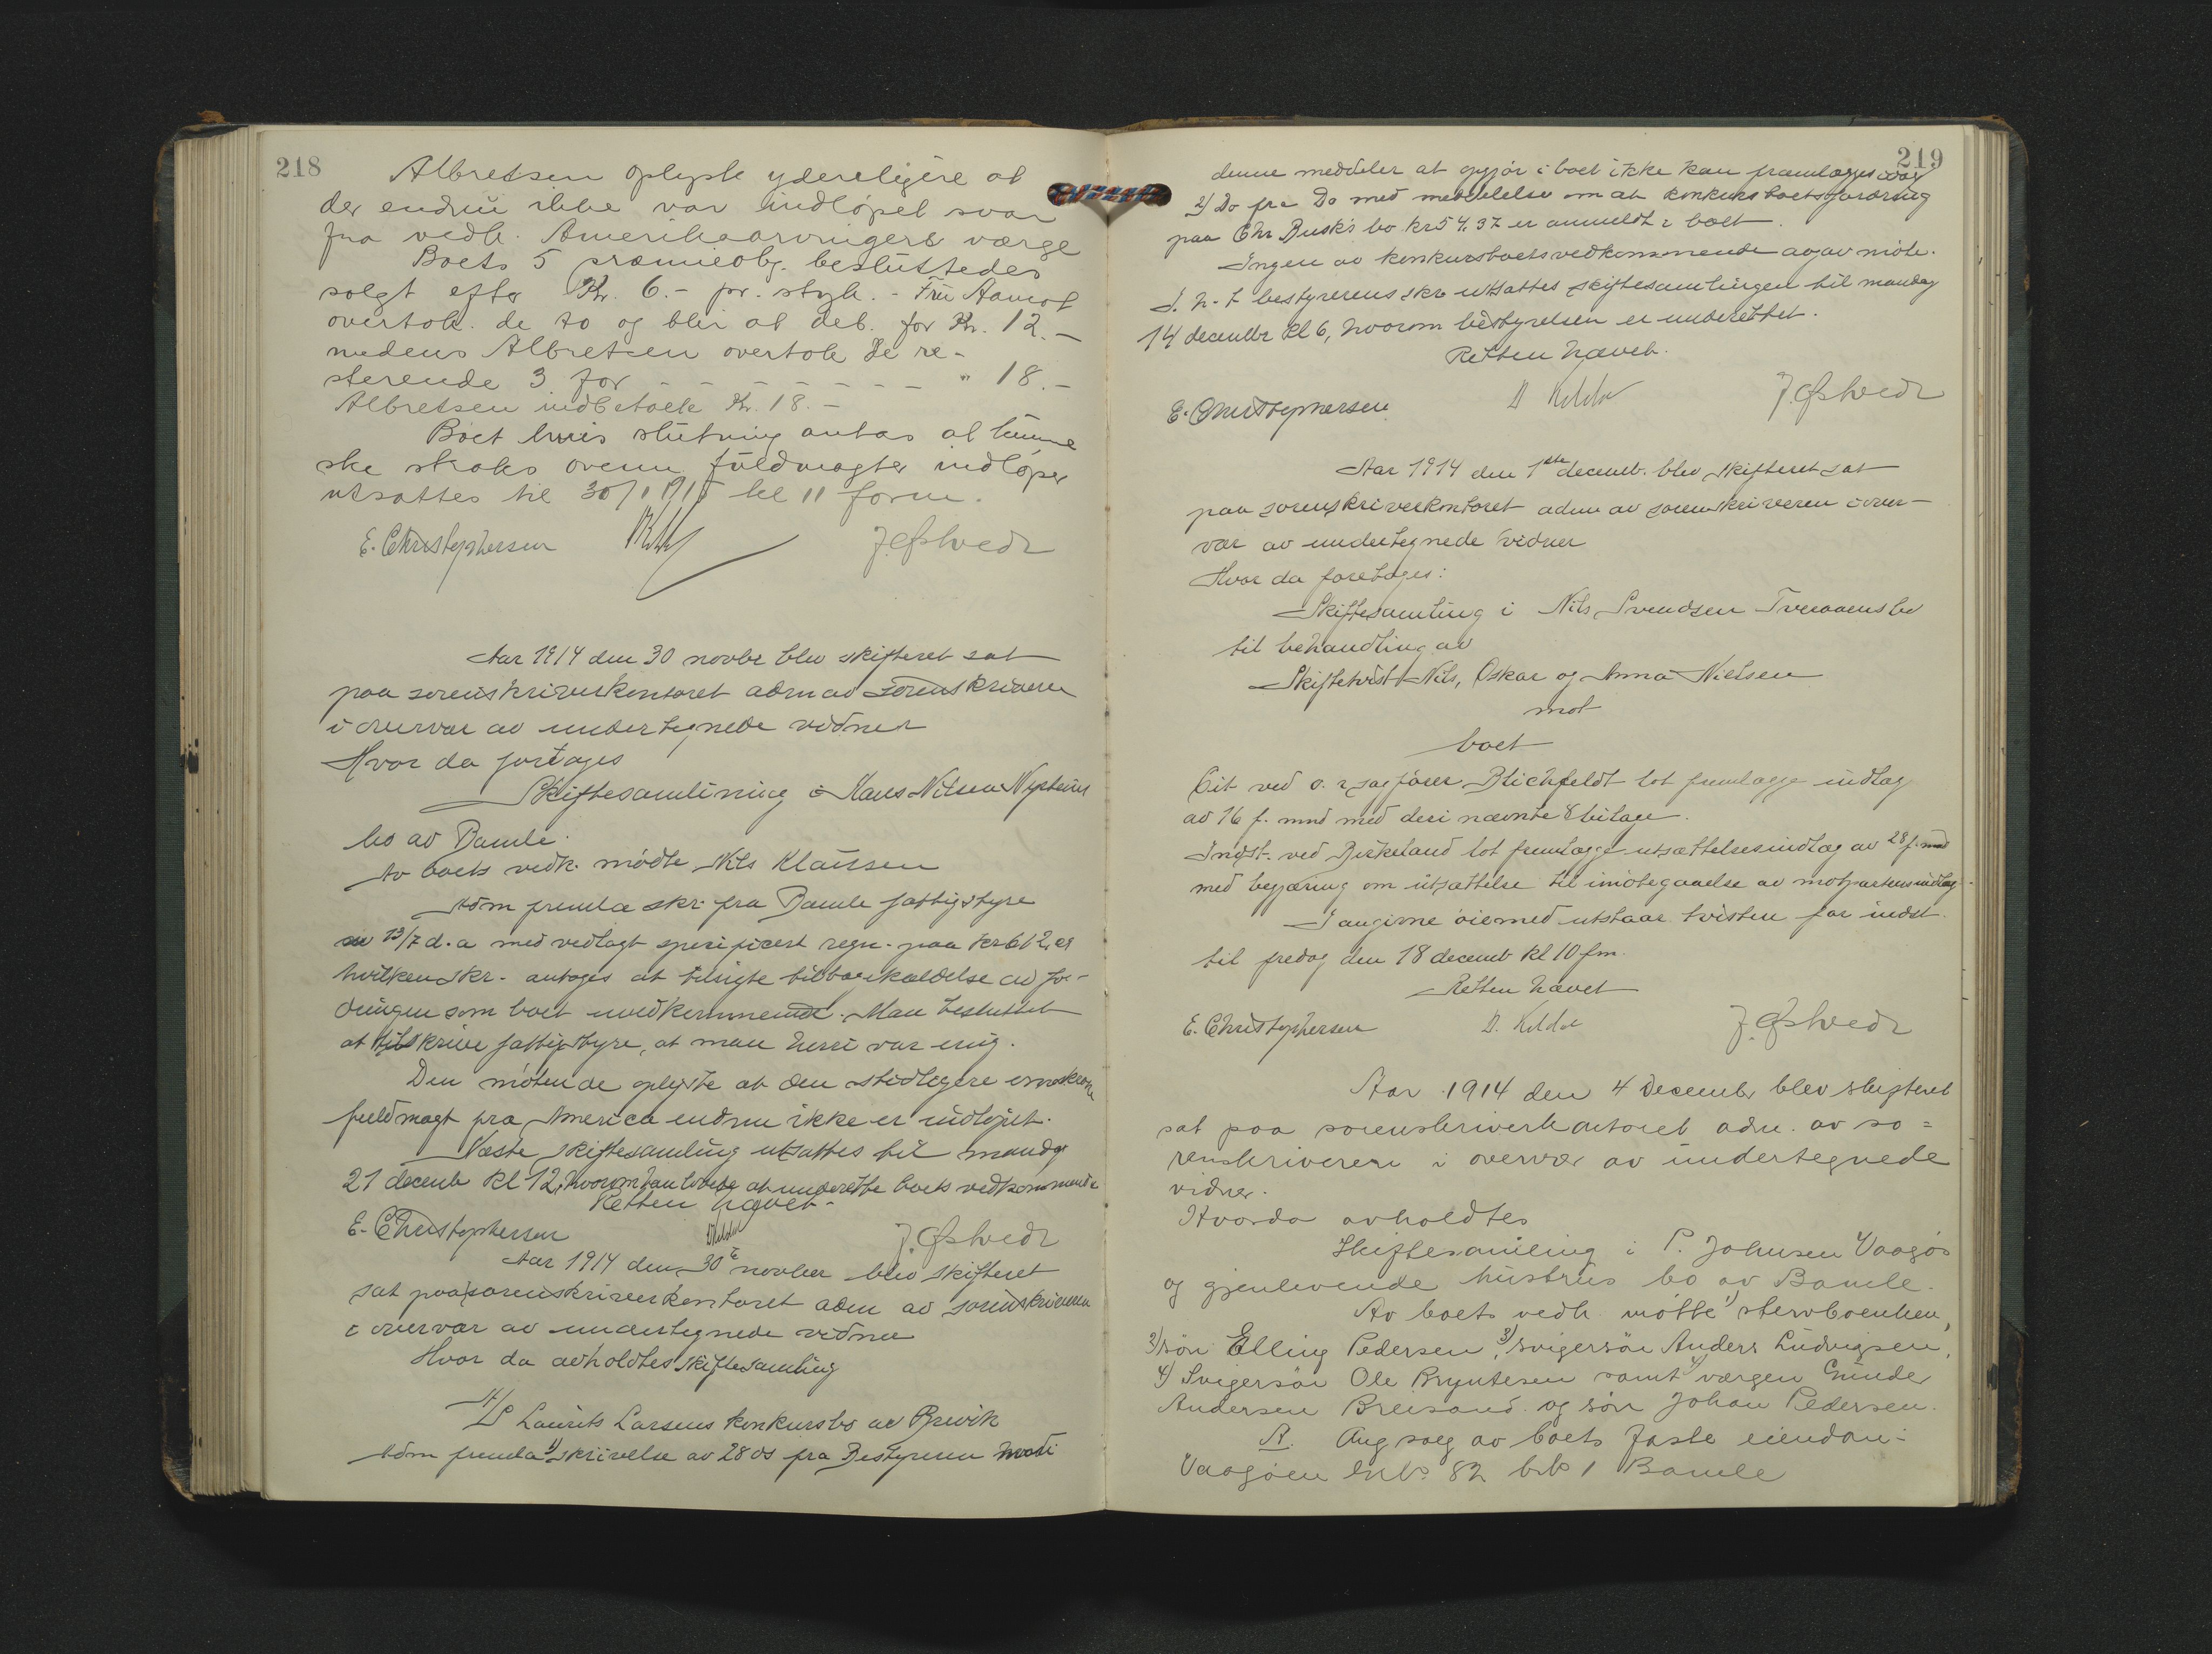 218
Albretsen oplyste yderligere at
der endnu ikke var indløpet svar
fra vedk. Amerikaarvingers værge
Boets 5 præmieobl. besluttedes
solgt efter Kr. 6.- pr. styk. - Fru Aamot
overtok de to og blir at deb. for Kr. 12.-
medens Albretsen overtok de re-
sterende 3 for - - - - - - - " 18.-
Albretsen indbetalte Kr. 18.-
Boet hvis slutning antas at kunne
ske straks ovenn. fuldmagter indløper
utsattes til 30/1 1915 kl 11 form.
E. Christophersen J. Østvedt
Aar 1914 den 30 novbr blev skifteret sat
paa sorenskriverkontoret adm av sorenskriveren
i overvær av undertegnede vidner
Hvor da foretoges
Skiftesamlining i Hans Nilsen Nysteins
bo av Bamle.
Av boets vedk. mødte Nils Klausen
Adm fremla skr. fra Bamle fattigstyre
av 13/7 d.a med vedlagt specificert regn. paa kr
hvilken skr. antoges at tilsigte tilbakekaldelse av for-
dringen som boet uvedkommende. Man besluttet
at tilskrive fattigstyre, at man heri var enig.
Den møtende oplyste at den stedlegere omskrevne
fuldmagt fra America endnu ikke er indløpet.
Næste skiftesamling utsattes til mandag
21 decemb kl 12, hvorom han lovede at underrette boets vedkommende
Retten hævet.
E. Christophersen D. Kilder J. Østvedt
Aar 1914 den 30te novber blev skifteret
sat paa sorenskriverkontoret adm av sorenskriveren
i overvær av undertegnede vidner
Hvor da avholdtes skiftesamling
i Laurits Larsens konkursbo av Brevik
Adm fremla 1) skrivelse av 28 ds fra Bestyreren hvori
219
denne meddeler at opgjør i boet ikke kan fremlægges idag
2) Do fra Do med meddelelse om at konkursboets fordring
paa Chr Busk's bo kr 54,37 er anmeldt i boet.
Ingen av konkursboets vedkommende avgav møte.
I h. t bestyrerens skr utsattes skiftesamlingen til mandag
14 decembr kl 6, hvorom bestyrelsen er underrettet.
Retten hævet.
E. Christophersen D Kilder J. Østvedt
Aar 1914 den 1ste decemb. blev skifteret sat
paa sorenskriverkontoret adm av sorenskriveren i over-
vær av undertegnede vidner
Hvor da foretoges:
Skiftesamling i Nils Svendsen Tveraaens bo
til behandling av
Skiftetvist Nils, Oskar og Anna Nielsen
mot
boet
Cit ved o. r sagfører Blichfeldt lot fremlægge indlæg
av 16 f. mnd med deri nævnte 8 bilage.
Indst. ved Birkeland lot fremlægge utsættelsesindlæg av 28 f. md
med begjæring om utsættelse til imøtegaaelse av motpartens indlæg.
I angivne øiemed utstaar tvisten for indst.
til fredag den 18 decemb kl 10 fm.
Retten hævet
E. Christophersen D. Kilder J. Østvedt
Aar 1914 den 4 Decembr blev skifteret
sat paa sorenskriverkontoret adm. av so=
renskriveren i overvær av undertegnede
vidner.
Hvorda avholdtes
Skiftesamling i P. Johnsen Vaagøs
og gjenlevende hustrus bo av Bamle.
Av boets vedk. møtte 1) stervboenken,
2) søn Elling Pedersen, 3) svigersøn Anders Ludvigsen,
4) Svigersøn Ole Bryntesen samt 4) værgen Gunder
Andersen Breisand og søn Johan Pedersen.
A. Ang salg av boets faste eiendom:
Vaagøen gno 82 bno 1 Bamle